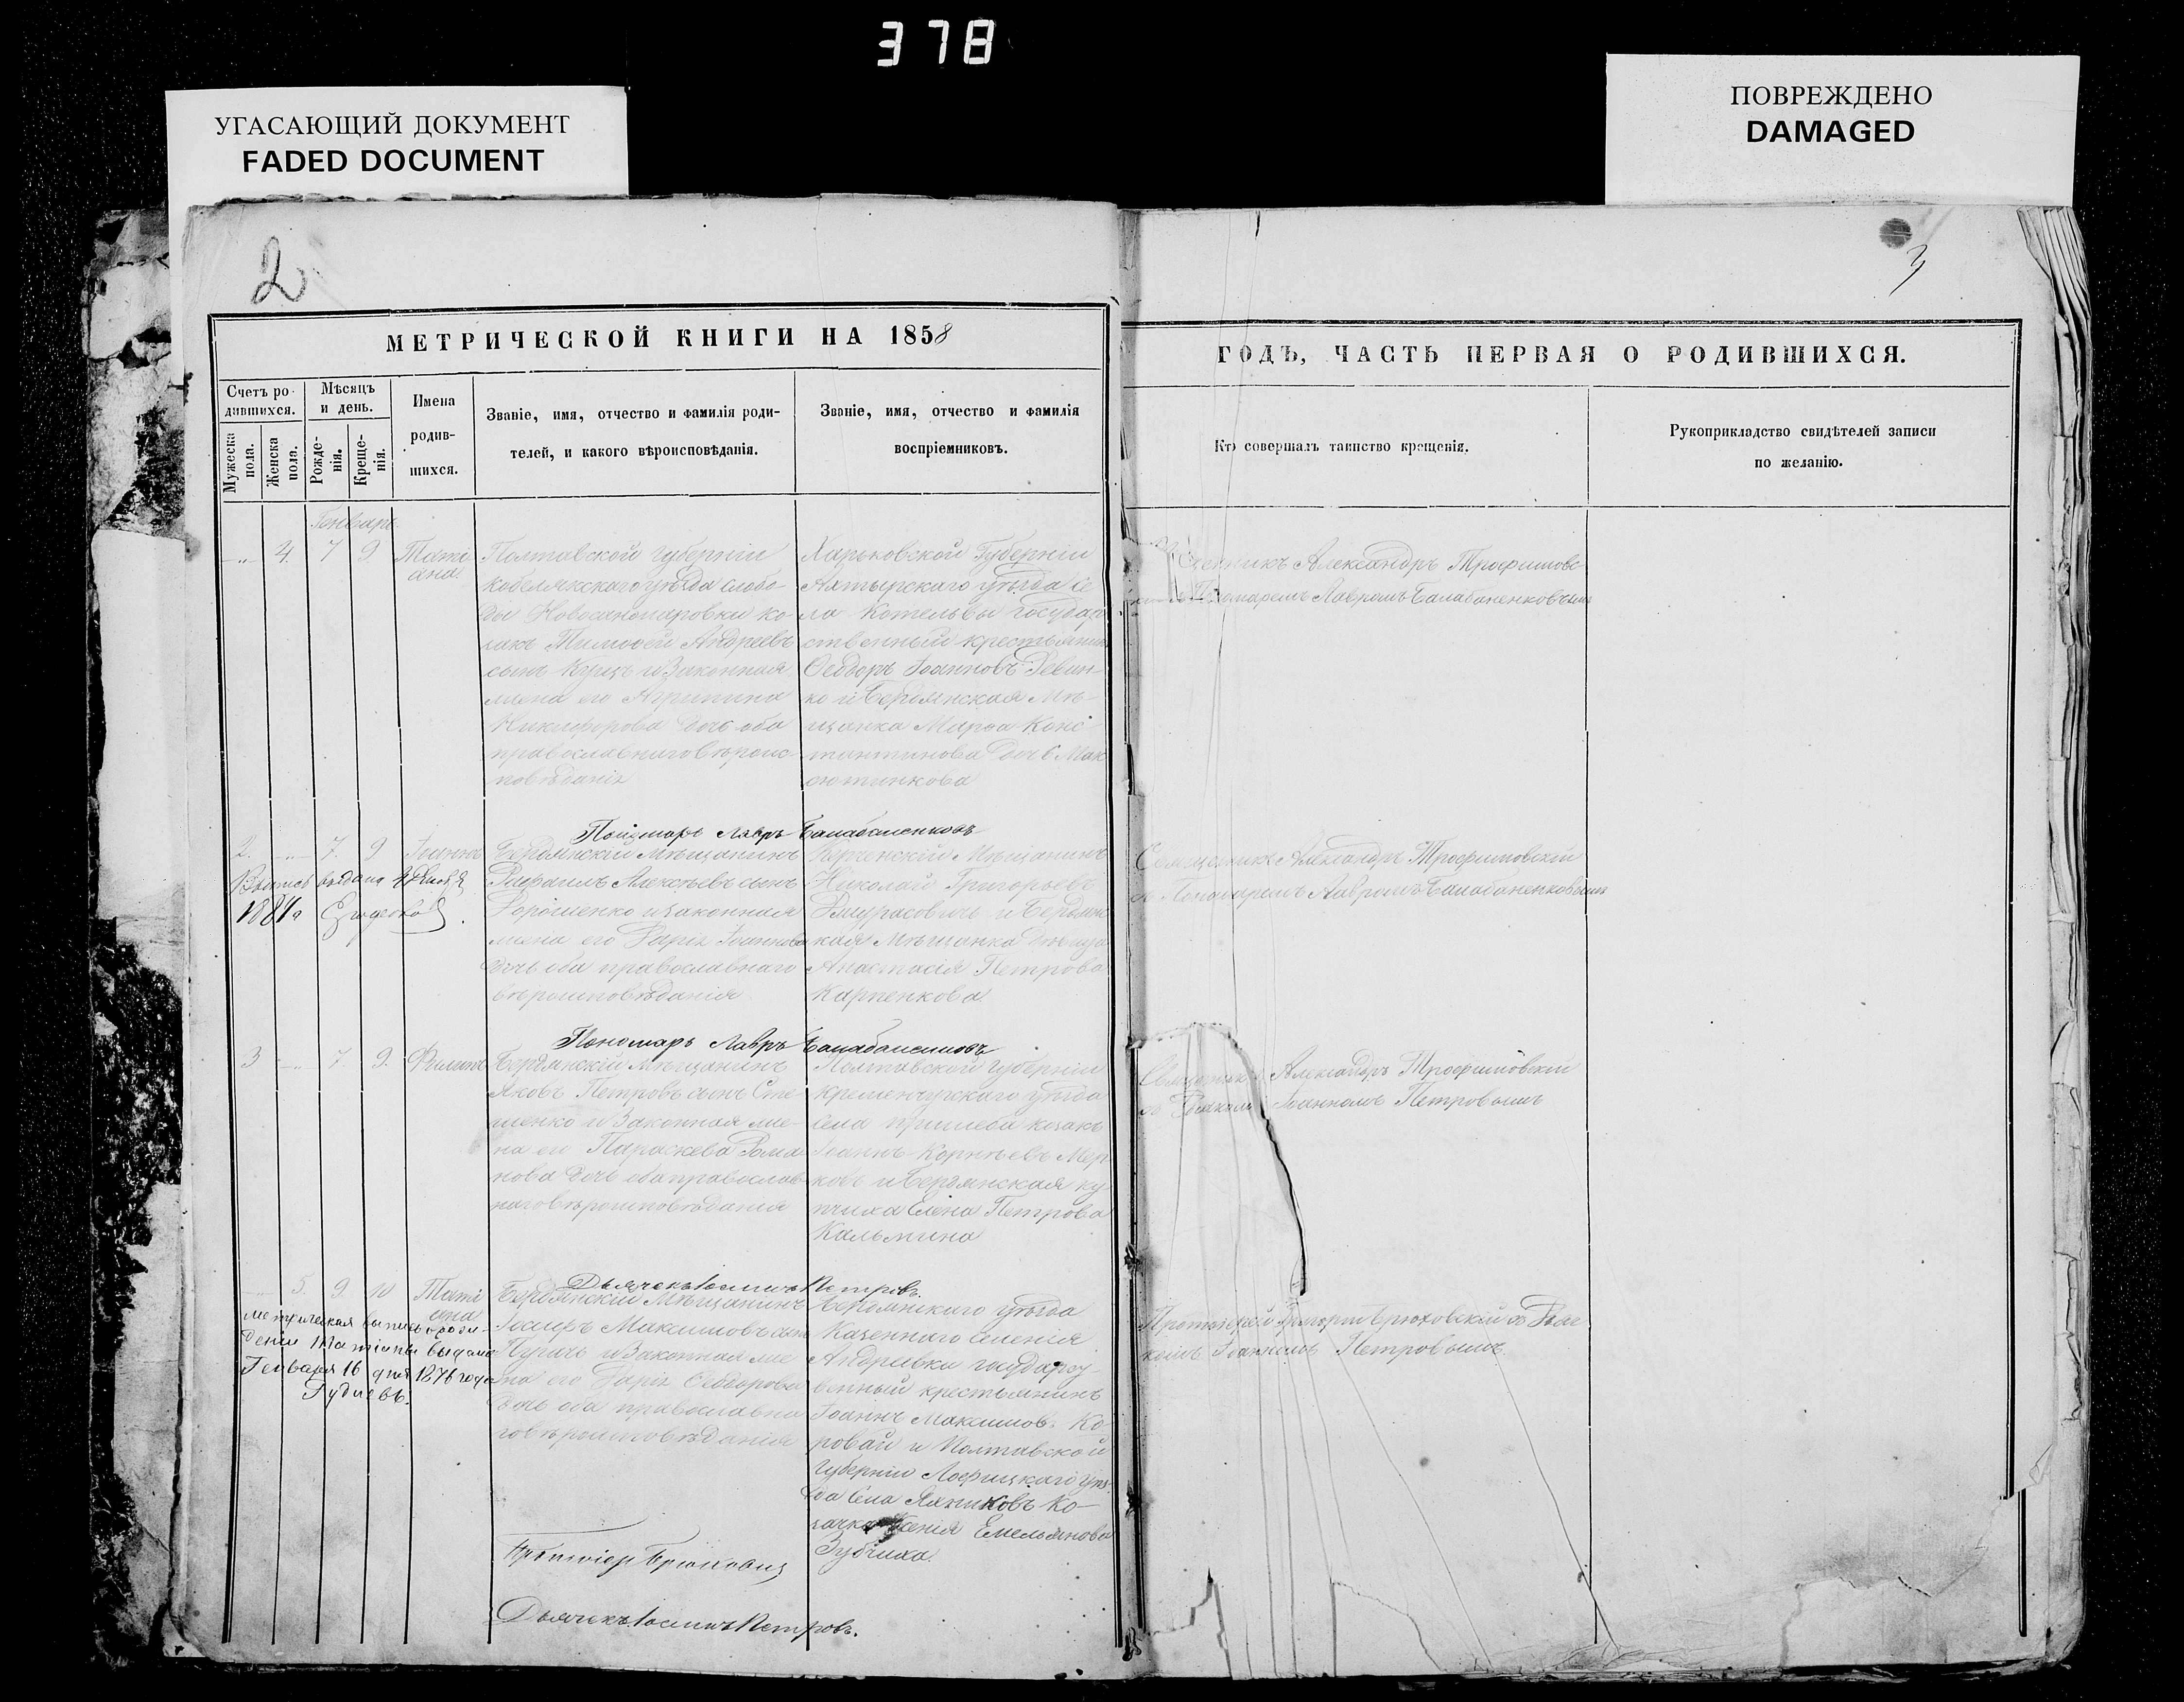 378
УГАСАЮЩИЙ ДОКУМЕНТ
FADED DOCUMENT
ПОВРЕЖДЕНО
DAMAGED
2
3
МЕТРИЧЕСКОЙ КНИГИ НА 1858
ГОДЪ, ЧАСТЬ ПЕРВАЯ О РОДИВШИХСЯ.
Счетъ ро-
дившихся.
Мужеска
пола.
Женска
пола.
Мѣсяцъ
и день.
Рожде-
нія.
Креще-
нія.
Имена
родив-
шихся.
Званіе, имя, отчество и фамилія роди-
телей, и какого вѣроисповѣданія.
Званіе, имя, отчество и фамилія
воспріемниковъ.
Кто совершалъ таинство крещенія.
Рукоприкладство свидѣтелей записи
по желанію.
Генварь
4. 7 9 Тати
ана.
Полтавской губерніи
Кобелякскаго уѣзда слобо-
ды
закъ Тимоѳей Андреевъ
сынъ и законная
жена его Агрипина
Никифорова дочь оба
православнаго вѣроис-
повѣданія
Харьковской Губерніи
Ахтырскаго уѣзда се
ла Котельвы государ
ственный крестьянинъ
Ѳеодоръ Іоанновъ Ревин-
ко и Бердянская Мѣ-
щанка Марѳа Конс
тантинова дочь Мак
сютинкова
Александръ Трофимовс
Пономаремъ Лавромъ Балабаненковымъ
Пономарь Лавръ Балабаненковъ
2. 7. 9 Іоаннъ
Выпись выдана
1881
Бердянскій Мѣщанинъ
Рафаилъ Алексѣевъ сынъ
Дорошенко и законная
жена его Дарія Іоаннова
дочь оба православнаго
вѣроисповѣданія
Керченскій Мѣщанинъ
Николай Григорьевъ
и Бердянс
кая Мѣщанка дѣвица
Анастасія Петрова
Карпенкова
Священникъ Александръ Трофимовскій
съ Пономаремъ Лавромъ Балабаненковымъ
Пономарь Лавръ Балабаненковъ
3 7. 9. Филипъ
Бердянскій Мѣщанинъ
Яковъ Петровъ сынъ Сте
шенко и Законная же-
на его Параскева Рома
нова дочь оба православ
наго вѣроисповѣданія
Полтавской губерніи
Кременчугскаго уѣзда
села козакъ
Іоаннъ Корнѣевъ Мер
ковъ и Бердянская ку
пчиха Елена Петрова
Кальмина
Священникъ Александръ Трофимовскій
съ Дьякомъ Іоанномъ Петровымъ
Дьячекъ Іоаннъ Петровъ.
5. 9 10 Тати
ана
Метрическая выпись о рож-
деніи Татіаны выдана
Генваря 16 дня 1876 года
Бердянскій Мѣщанинъ
Максимовъ сынъ
и Законная же
на его Дарія Ѳеодорова
дочь оба православна
го вѣроисповѣданія
Бердянскаго уѣзда
Казеннаго селенія
Андреевки государст
венный крестьянинъ
Іоаннъ Максимовъ Ко
ровай и Полтавской
губерніи Лохвицкаго уѣз-
да села Яхниковъ Ко-
зачка Ксенія Емельянова
Зубчиха
Протоіерей Григорій Брюховскій съ Дьяч
комъ Іоанномъ Петровымъ
Протоіер
Дьячекъ Іоаннъ Петровъ.